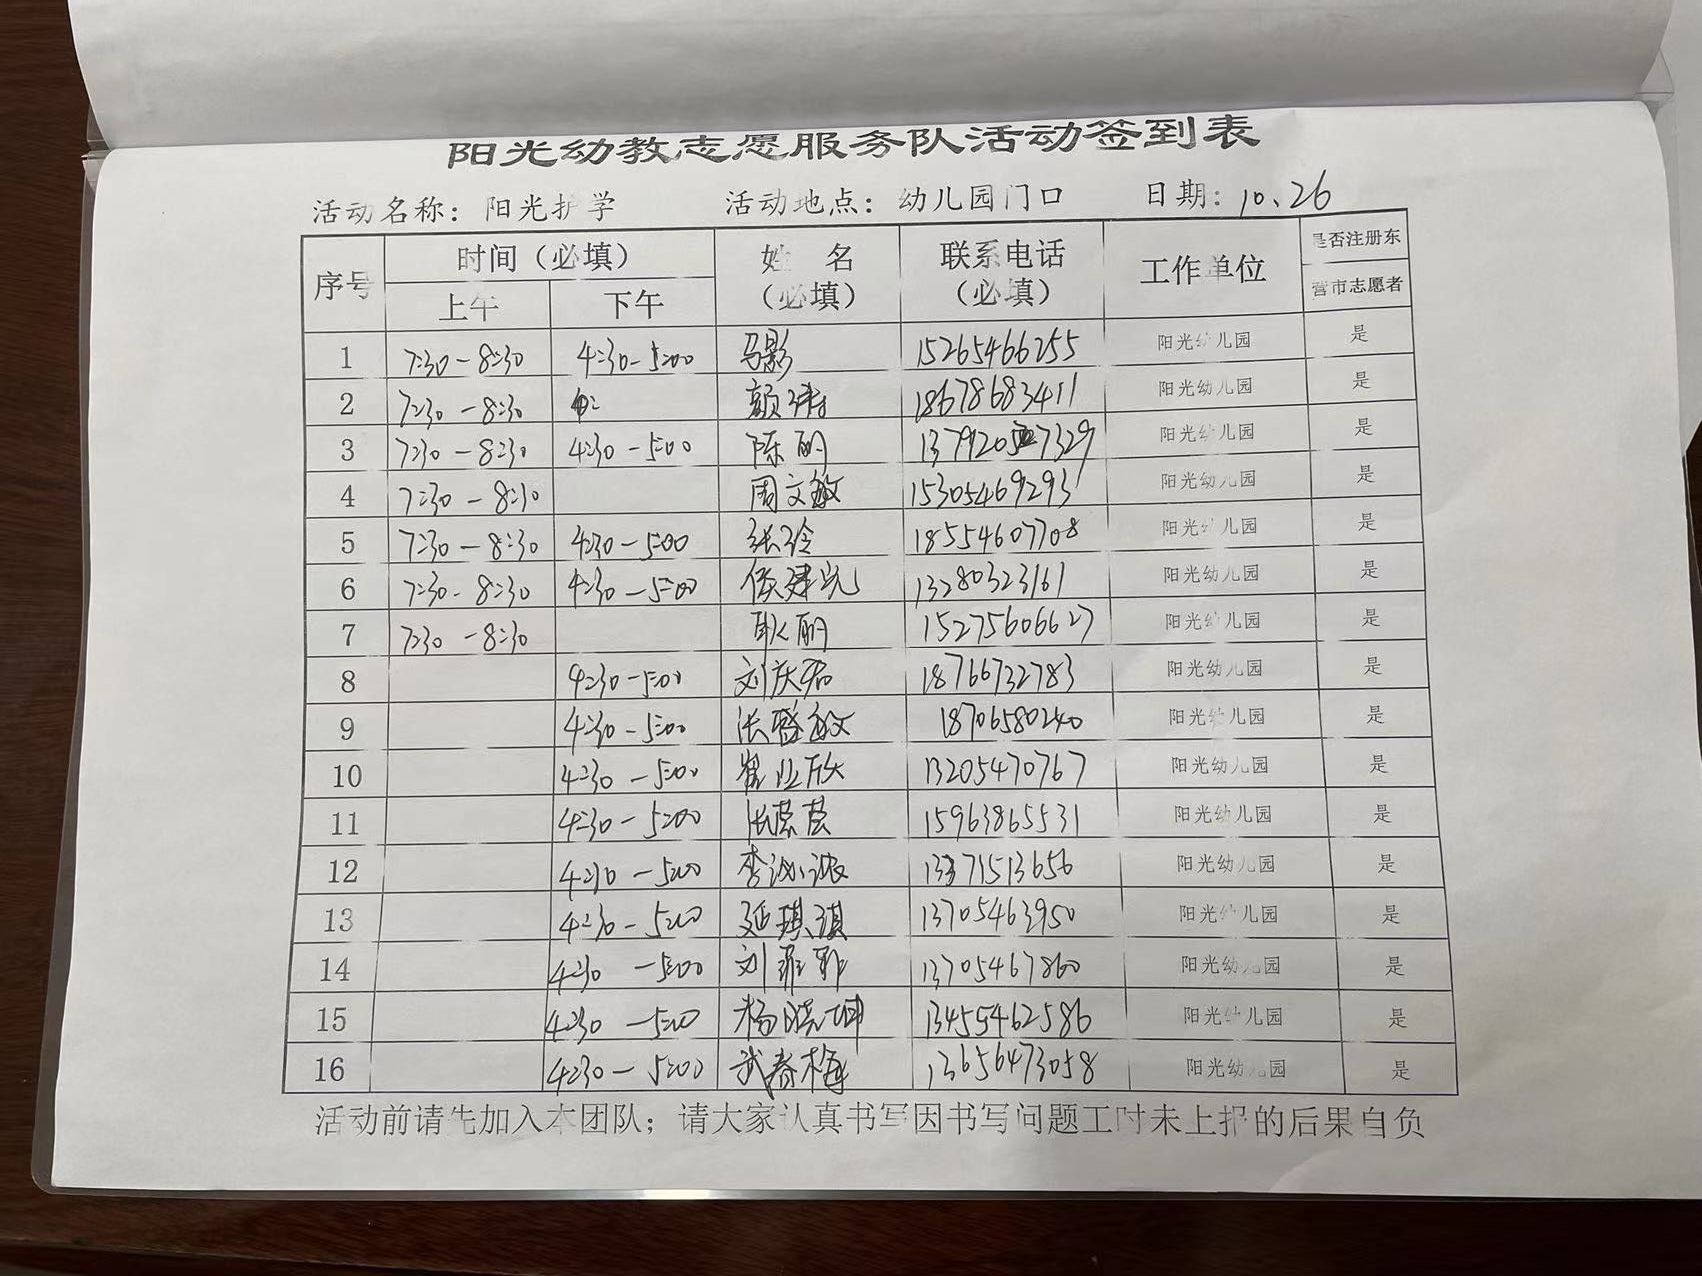 阳光幼教志愿服务队活动签到表
活动名称：阳光护学 活动地点：幼儿园门口 日期：10.26
序号 时间（必填） 姓 名（必填） 联系电话（必填） 工作单位 是否注册东营市志愿者
上午 下午
1 7:30-8:30 4:30-5:00 马影 15265466255 阳光幼儿园 是
2 7:30-8:30 18678683411 阳光幼儿园 是
3 7:30-8:30 4:30-5:00 陈丽 阳光幼儿园 是
4 7:30-8:30 周文敏 15305469293 阳光幼儿园 是
5 7:30-8:30 4:30-5:00 张玲 18554607708 阳光幼儿园 是
6 7:30-8:30 4:30-5:00 13280323161 阳光幼儿园 是
7 7:30-8:30 耿丽 15275606627 阳光幼儿园 是
8 4:30-5:00 刘庆君 18766732783 阳光幼儿园 是
9 4:30-5:00 张盛敏 18706580240 阳光幼儿园 是
10 4:30-5:00 13205470767 阳光幼儿园 是
11 4:30-5:00 15963865531 阳光幼儿园 是
12 4:30-5:00 13371513656 阳光幼儿园 是
13 4:30-5:00 延琪琪 13705463950 阳光幼儿园 是
14 4:30-5:00 刘菲菲 13705467860 阳光幼儿园 是
15 4:30-5:00 杨晓坤 13455462586 阳光幼儿园 是
16 4:30-5:00 武春梅 13656473058 阳光幼儿园 是
活动前请先加入本团队；请大家认真书写因书写问题工时未上报的后果自负